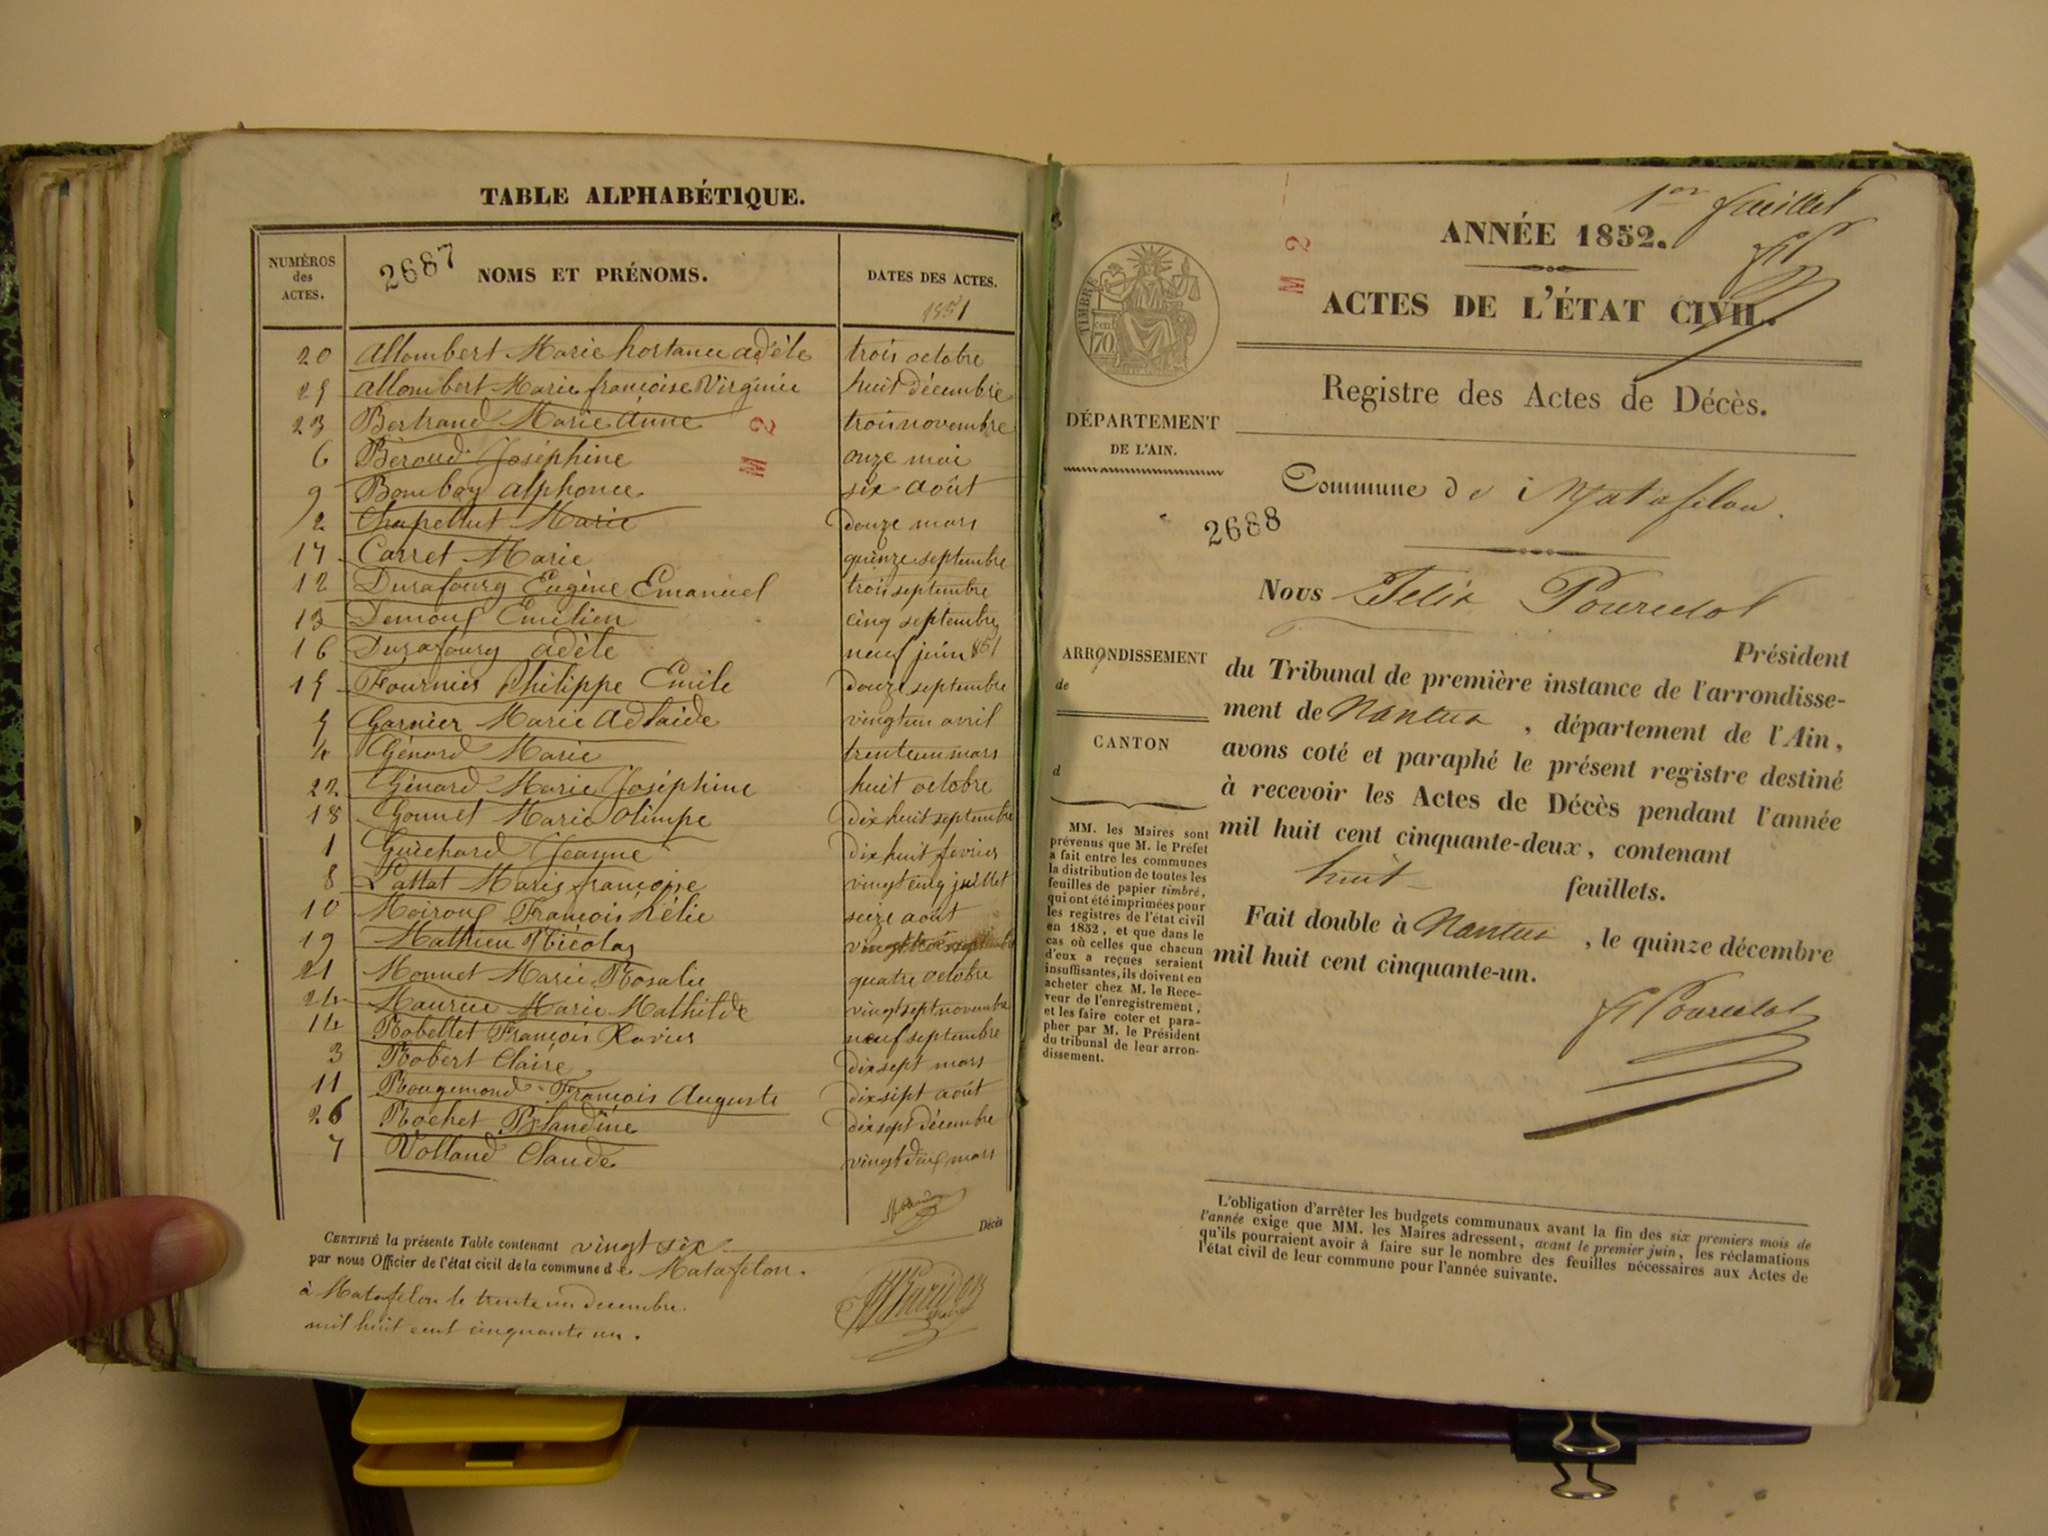 TABLE ALPHABÉTIQUE.
NUMÉROS des ACTES.
2687
NOMS ET PRÉNOMS.
DATES DES ACTES.
1851
20 Allombert Marie hortance adèle trois octobre
25 allombert Marie françoise Virginie huit décembre
23 Bertrand Marie Anne trois novembre
M 2
6 Béroud Joséphine onze mai
9 Bombay alphonce six août
2 Chapellut Marie douze mars
17 Carret Marie quinze septembre
12 Durafourg Eugène Emanuel trois septembre
13 Demoux Emilien cinq septembre
16 Durafourg adèle neuf juin 851
15 Fournier Philippe Emile douze septembre
5 Garnier Marie Adlaide vingt un avril
4 Génard Marie trente un mars
22 Génard Marie Joséphine huit octobre
18 Gonnet Marie Olimpe dix huit septembre
1 Guichard Jeanne dix huit fevrier
8 Lattat Marie françoise vingt cinq juillet
10 Moiroux François hélie seize août
19 Mathieu Nicolas vingt trois septembre
21 Monnet Marie Rosalie quatre octobre
24 Maurice Marie Mathilde vingt sept novembre
14 Robellet François Xavier neuf septembre
3 Robert Claire dix sept mars
11 Rougemond François Auguste dix sept août
26 Rochet Blandine dix sept décembre
7 Volland Claude vingt deux mars
Décès
CERTIFIÉ la présente Table contenant vingt six
par nous Officier de l'état civil de la commune de Matafelon.
à Matafelon le trente un decembre
mil huit cent cinquante un.
1er feuillet
M 2
ANNÉE 1852.
ACTES DE L'ÉTAT CIVIL.
TIMBRE
70 cent
Registre des Actes de Décès.
DÉPARTEMENT
DE L'AIN.
Commune de Matafelon.
2688
Nous Félix Pourcelot
Président
ARRONDISSEMENT
de
CANTON
d
du Tribunal de première instance de l'arrondisse-
ment de Nantua, département de l'Ain,
avons coté et paraphé le présent registre destiné
à recevoir les Actes de Décès pendant l'année
mil huit cent cinquante-deux, contenant
huit feuillets.
Fait double à Nantua, le quinze décembre
mil huit cent cinquante-un.
F Pourcelot
MM. les Maires sont
prévenus que M. le Préfet
a fait entre les communes
la distribution de toutes les
feuilles de papier timbré,
qui ont été imprimées pour
les registres de l'état civil
en 1852, et que dans le
cas où celles que chacun
d'eux a reçues seraient
insuffisantes, ils doivent en
acheter chez M. le Rece-
veur de l'enregistrement,
et les faire coter et para-
pher par M. le Président
du tribunal de leur arron-
dissement.
L'obligation d'arrêter les budgets communaux avant la fin des six premiers mois de
l'année exige que MM. les Maires adressent, avant le premier juin, les réclamations
qu'ils pourraient avoir à faire sur le nombre des feuilles nécessaires aux Actes de
l'état civil de leur commune pour l'année suivante.